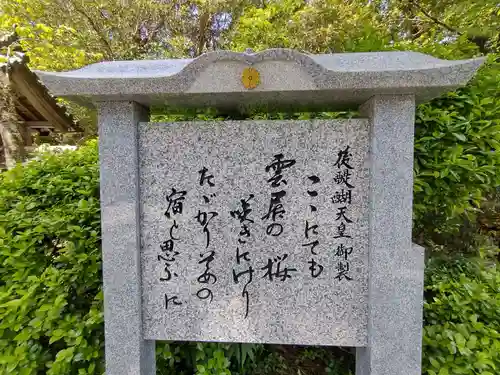 後醍醐天皇御製
こゝにても
雲居の桜
咲きにけり
たゞかりそめの
宿と思ふに